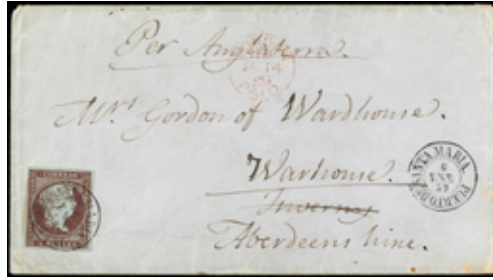 Per Anglaterra.
JA 14
Mrs Gordon of Wardhouse.
Warhouse.
Aberdeenshire.
PUERTO DE SANTA MARIA.
6
ENE
59
CORREOS